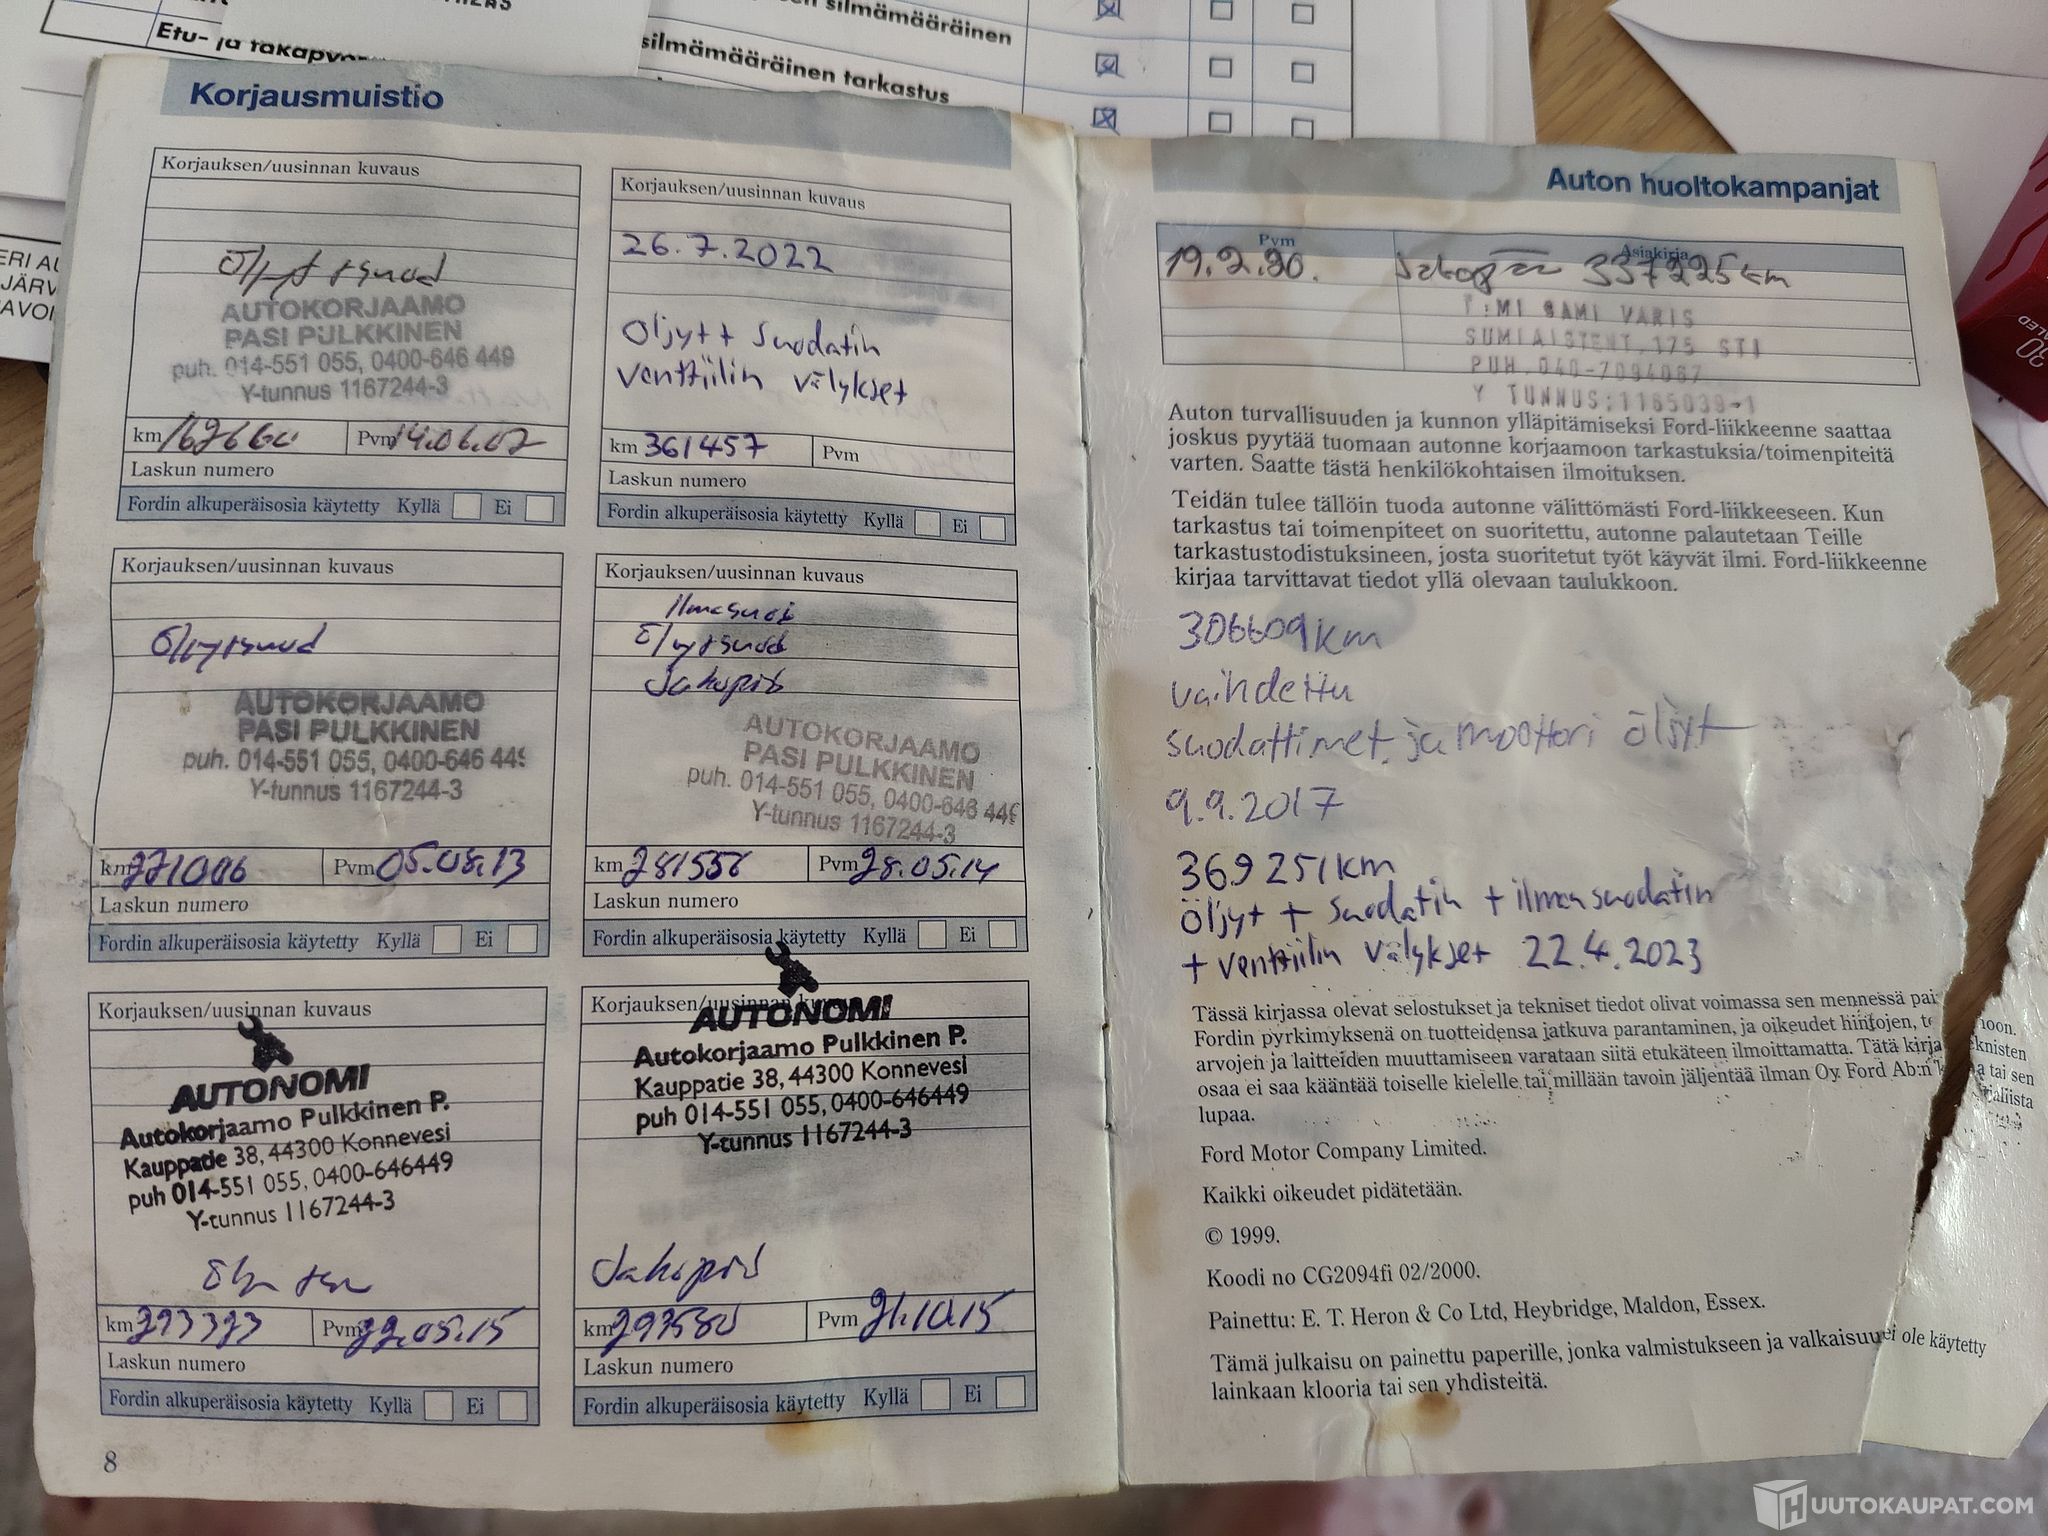 Etu- ja takapy
silmämääräinen
silmämääräinen tarkastus
Korjausmuistio
Korjauksen/uusinnan kuvaus
Öljyt+suod
AUTOKORJAAMO
PASI PULKKINEN
puh. 014-551 055, 0400-646 449
Y-tunnus 1167244-3
km 162660 Pvm 14.06.07
Laskun numero
Fordin alkuperäisosia käytetty Kyllä Ei
Korjauksen/uusinnan kuvaus
26.7.2022
Öljyt + suodatin
venttiilin välykset
km 361457 Pvm
Laskun numero
Fordin alkuperäisosia käytetty Kyllä Ei
Korjauksen/uusinnan kuvaus
Öljyt+suod
AUTOKORJAAMO
PASI PULKKINEN
puh. 014-551 055, 0400-646 449
Y-tunnus 1167244-3
km 271006 Pvm 05.08.13
Laskun numero
Fordin alkuperäisosia käytetty Kyllä Ei
Korjauksen/uusinnan kuvaus
ilmasuod
Öljyt+suod
Jakopää
AUTOKORJAAMO
PASI PULKKINEN
puh. 014-551 055, 0400-646 449
Y-tunnus 1167244-3
km 281556 Pvm 28.05.14
Laskun numero
Fordin alkuperäisosia käytetty Kyllä Ei
Korjauksen/uusinnan kuvaus
AUTONOMI
Autokorjaamo Pulkkinen P.
Kauppatie 38, 44300 Konnevesi
puh 014-551 055, 0400-646449
Y-tunnus 1167244-3
km 293323 Pvm 22.05.15
Laskun numero
Fordin alkuperäisosia käytetty Kyllä Ei
Korjauksen/uusinnan kuvaus
AUTONOMI
Autokorjaamo Pulkkinen P.
Kauppatie 38, 44300 Konnevesi
puh 014-551 055, 0400-646449
Y-tunnus 1167244-3
Jakopää
km 297580 Pvm 21.10.15
Laskun numero
Fordin alkuperäisosia käytetty Kyllä Ei
8
Auton huoltokampanjat
Pvm Asiakirja
19.2.20. Jakopää 337225 km
T:MI SAMI VARIS
SUMIAISTENT.175 STI
PUH.040-7094067
Y TUNNUS:1165039-1
Auton turvallisuuden ja kunnon ylläpitämiseksi Ford-liikkeenne saattaa
joskus pyytää tuomaan autonne korjaamoon tarkastuksia/toimenpiteitä
varten. Saatte tästä henkilökohtaisen ilmoituksen.
Teidän tulee tällöin tuoda autonne välittömästi Ford-liikkeeseen. Kun
tarkastus tai toimenpiteet on suoritettu, autonne palautetaan Teille
tarkastustodistuksineen, josta suoritetut työt käyvät ilmi. Ford-liikkeenne
kirjaa tarvittavat tiedot yllä olevaan taulukkoon.
306609 km
vaihdettu
suodattimet ja moottori öljyt
9.9.2017
369251 km
Öljyt + suodatin + ilmansuodatin
+ venttiilin välykset 22.4.2023
Tässä kirjassa olevat selostukset ja tekniset tiedot olivat voimassa sen mennessä pai noon.
Fordin pyrkimyksenä on tuotteidensa jatkuva parantaminen, ja oikeudet hintojen, te knisten
arvojen ja laitteiden muuttamiseen varataan siitä etukäteen ilmoittamatta. Tätä kirja a tai sen
osaa ei saa kääntää toiselle kielelle tai millään tavoin jäljentää ilman Oy. Ford Ab:n k jallista
lupaa.
Ford Motor Company Limited.
Kaikki oikeudet pidätetään.
© 1999.
Koodi no CG2094fi 02/2000.
Painettu: E. T. Heron & Co Ltd, Heybridge, Maldon, Essex.
Tämä julkaisu on painettu paperille, jonka valmistukseen ja valkaisuu ei ole käytetty
lainkaan klooria tai sen yhdisteitä.
HUUTOKAUPAT.COM